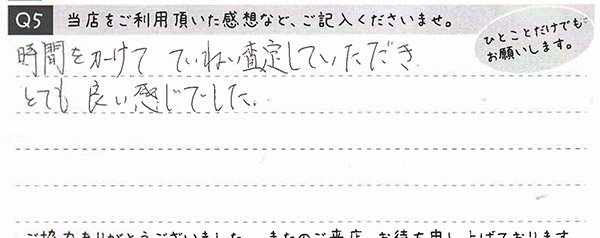 Q5 当店をご利用頂いた感想など、ご記入くださいませ。
ひとことだけでも
お願いします。
時間をかけて ていねい査定していただき
とても 良い感じでした。
ご協力ありがとうございました。 またのご来店、お待ち申し上げております